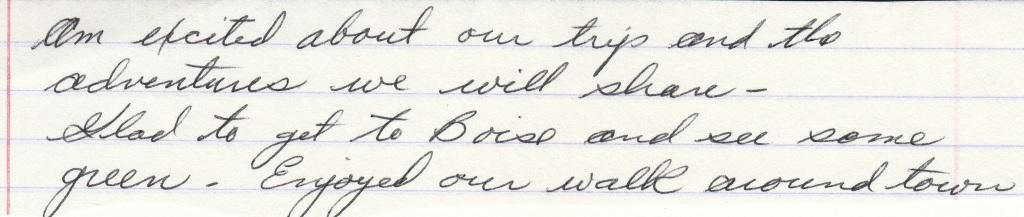 Am excited about our trip and the
adventures we will share -
Glad to get to Boise and see some
green - Enjoyed our walk around town